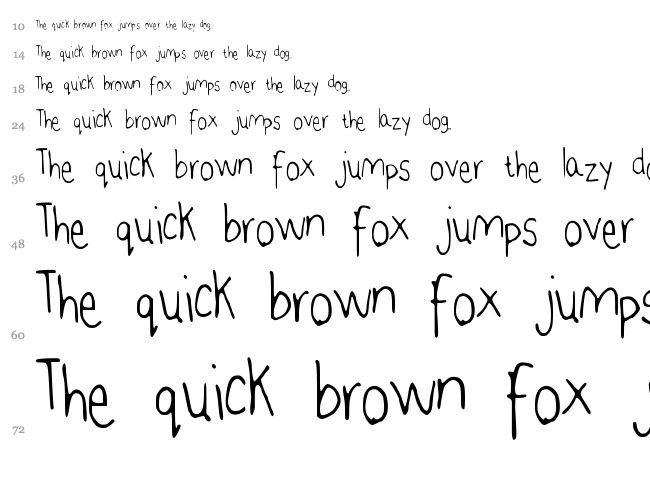 10 The quick brown fox jumps over the lazy dog.
14 The quick brown fox jumps over the lazy dog.
18 The quick brown fox jumps over the lazy dog.
24 The quick brown fox jumps over the lazy dog.
36 The quick brown fox jumps over the lazy do
48 The quick brown fox jumps over
60 The quick brown fox jumps
72 The quick brown fox j